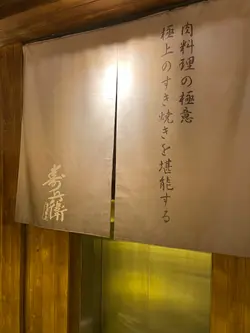 肉料理の極意
極上のすき焼きを堪能する
寿兵衛